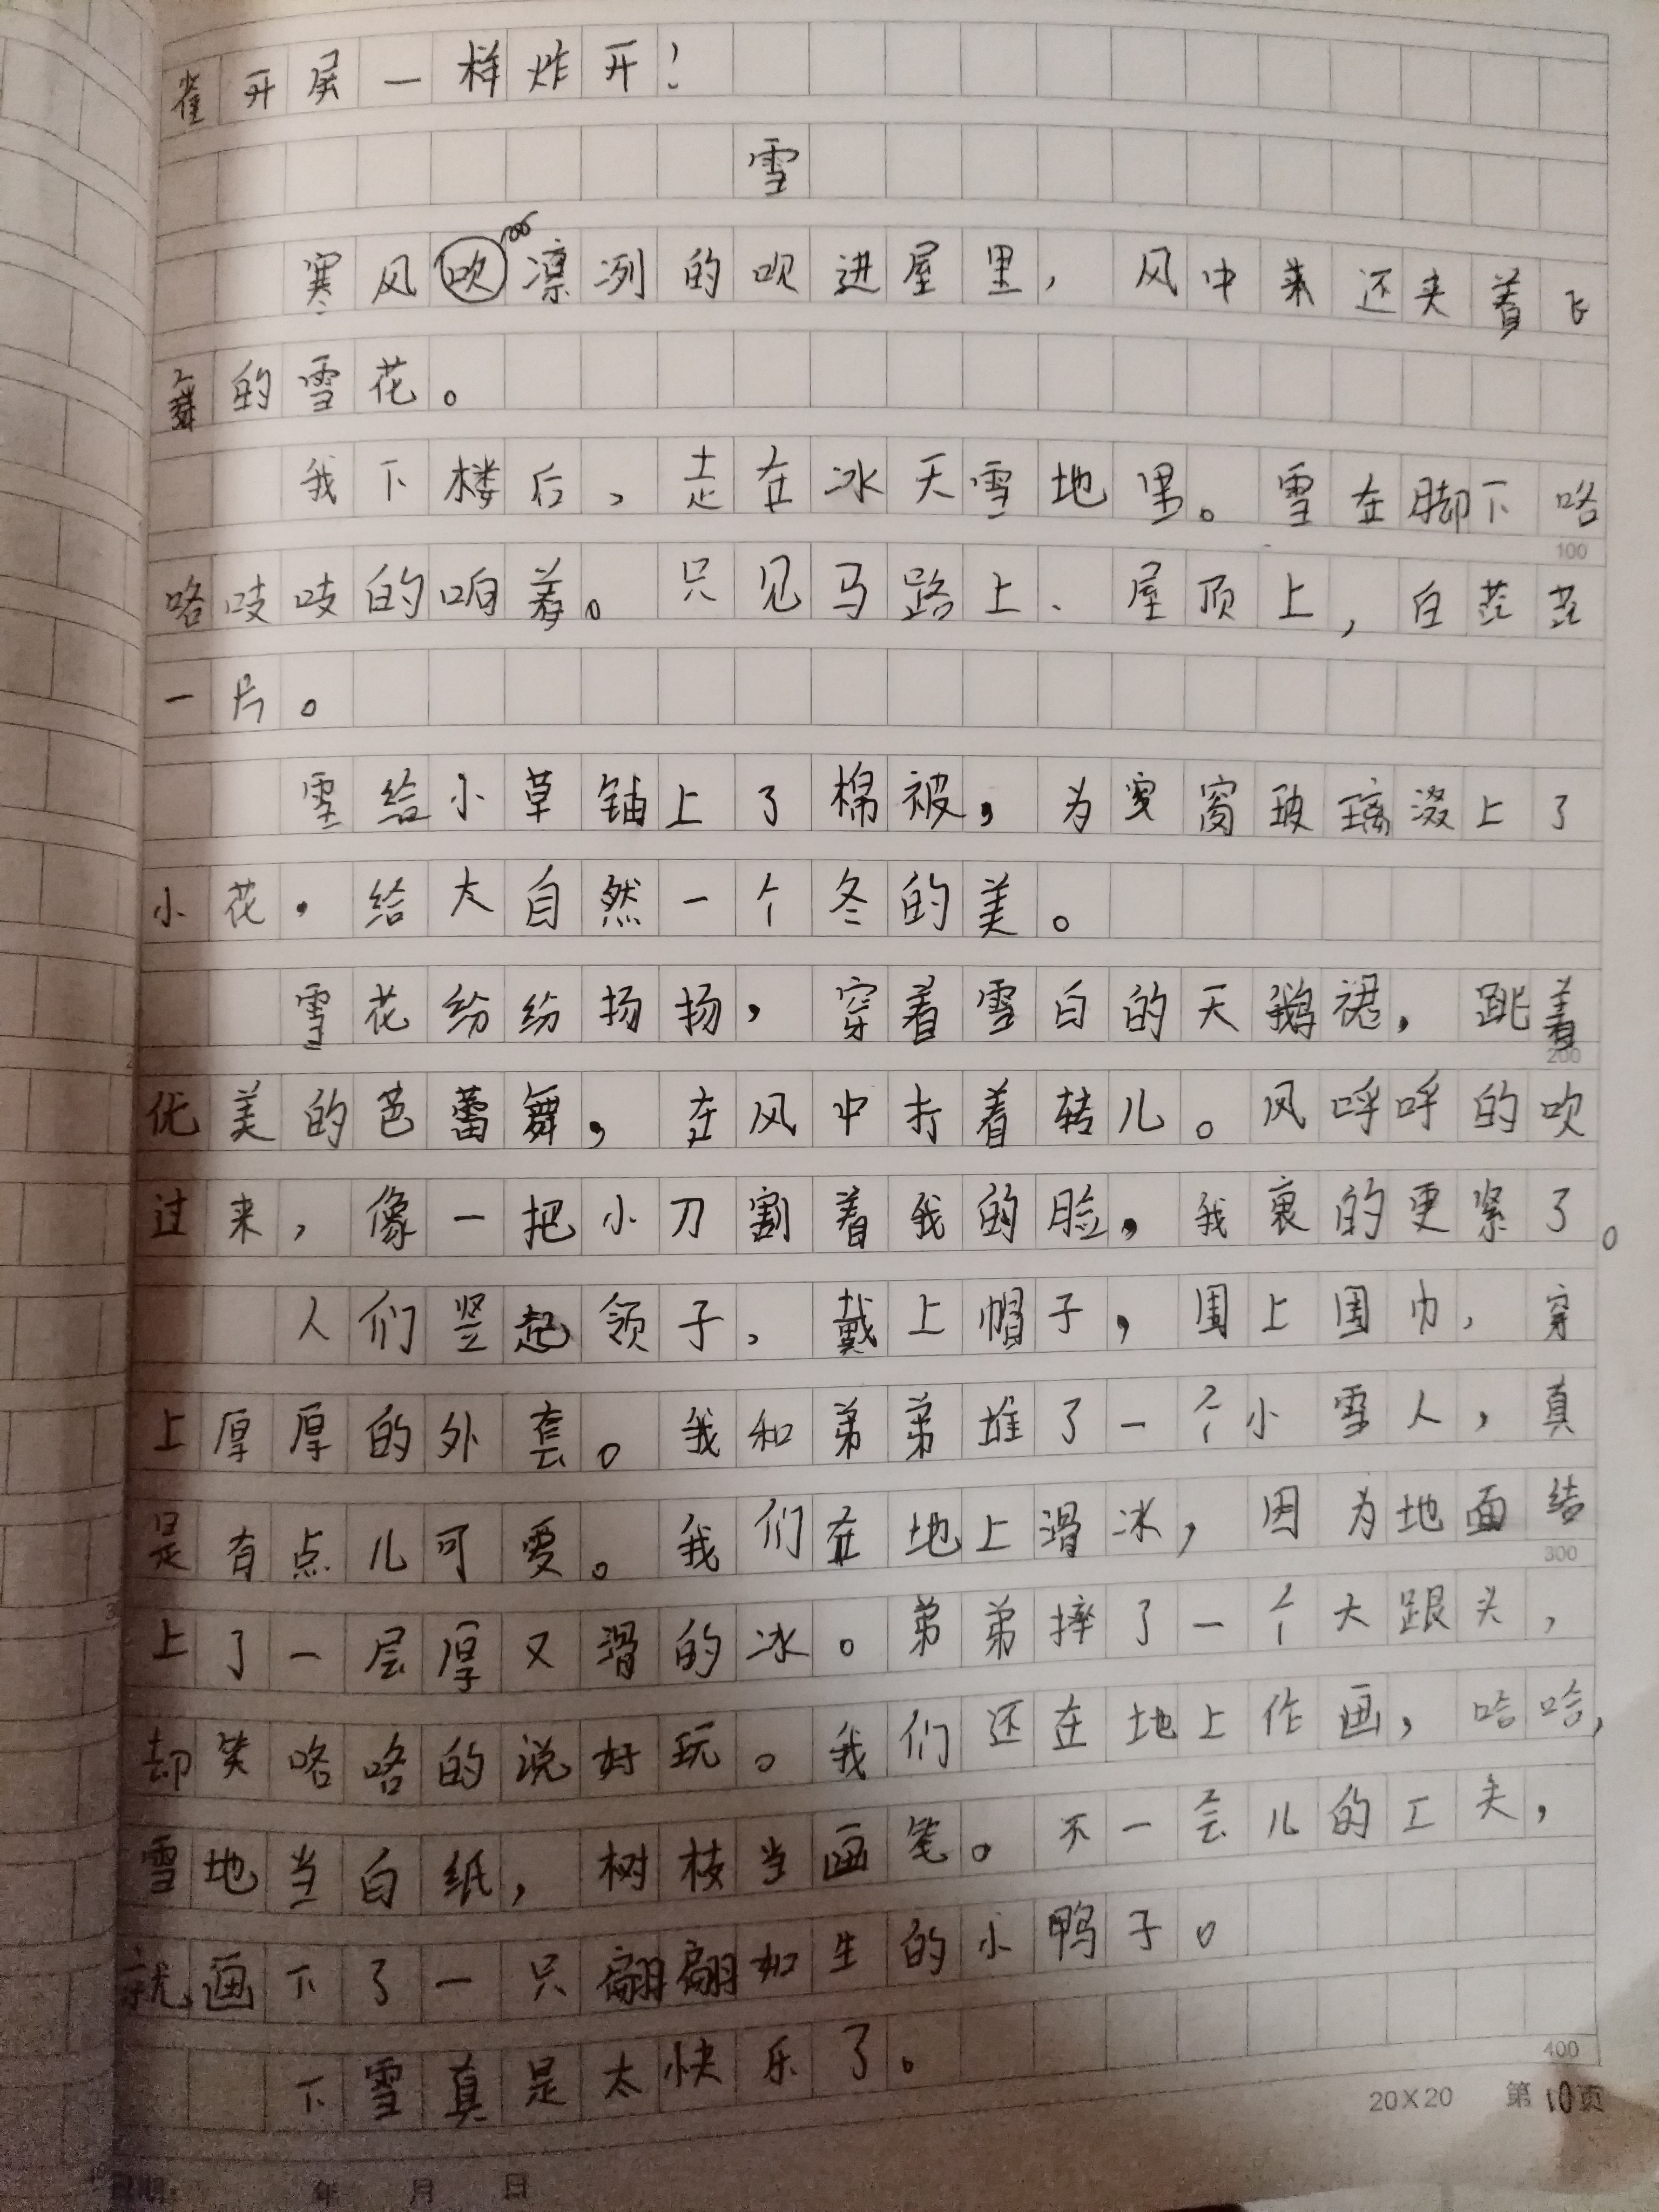 雀开屏一样炸开！
雪
寒风吹凛冽的吹进屋里，风中来还夹着飞
舞的雪花。
我下楼后，走在冰天雪地里。雪在脚下咯
咯吱吱的响着。只见马路上、屋顶上，白茫茫
一片。
雪给小草铺上了棉被，为窗玻璃缀上了
小花，给大自然一个冬的美。
雪花纷纷扬扬，穿着雪白的天鹅裙，跳着
优美的芭蕾舞，在风中打着转儿。风呼呼的吹
过来，像一把小刀割着我的脸，我裹的更紧了。
人们竖起领子，戴上帽子，围上围巾，穿
上厚厚的外套。我和弟弟堆了一个小雪人，真
是有点儿可爱。我们在地上滑冰，因为地面结
上了一层厚又滑的冰。弟弟摔了一个大跟头，
却笑咯咯的说好玩。我们还在地上作画，哈哈，
雪地当白纸，树枝当画笔。不一会儿的工夫，
就画下了一只翩翩如生的小鸭子。
下雪真是太快乐了。
100
200
300
400
20×20 第10页
年 月 日